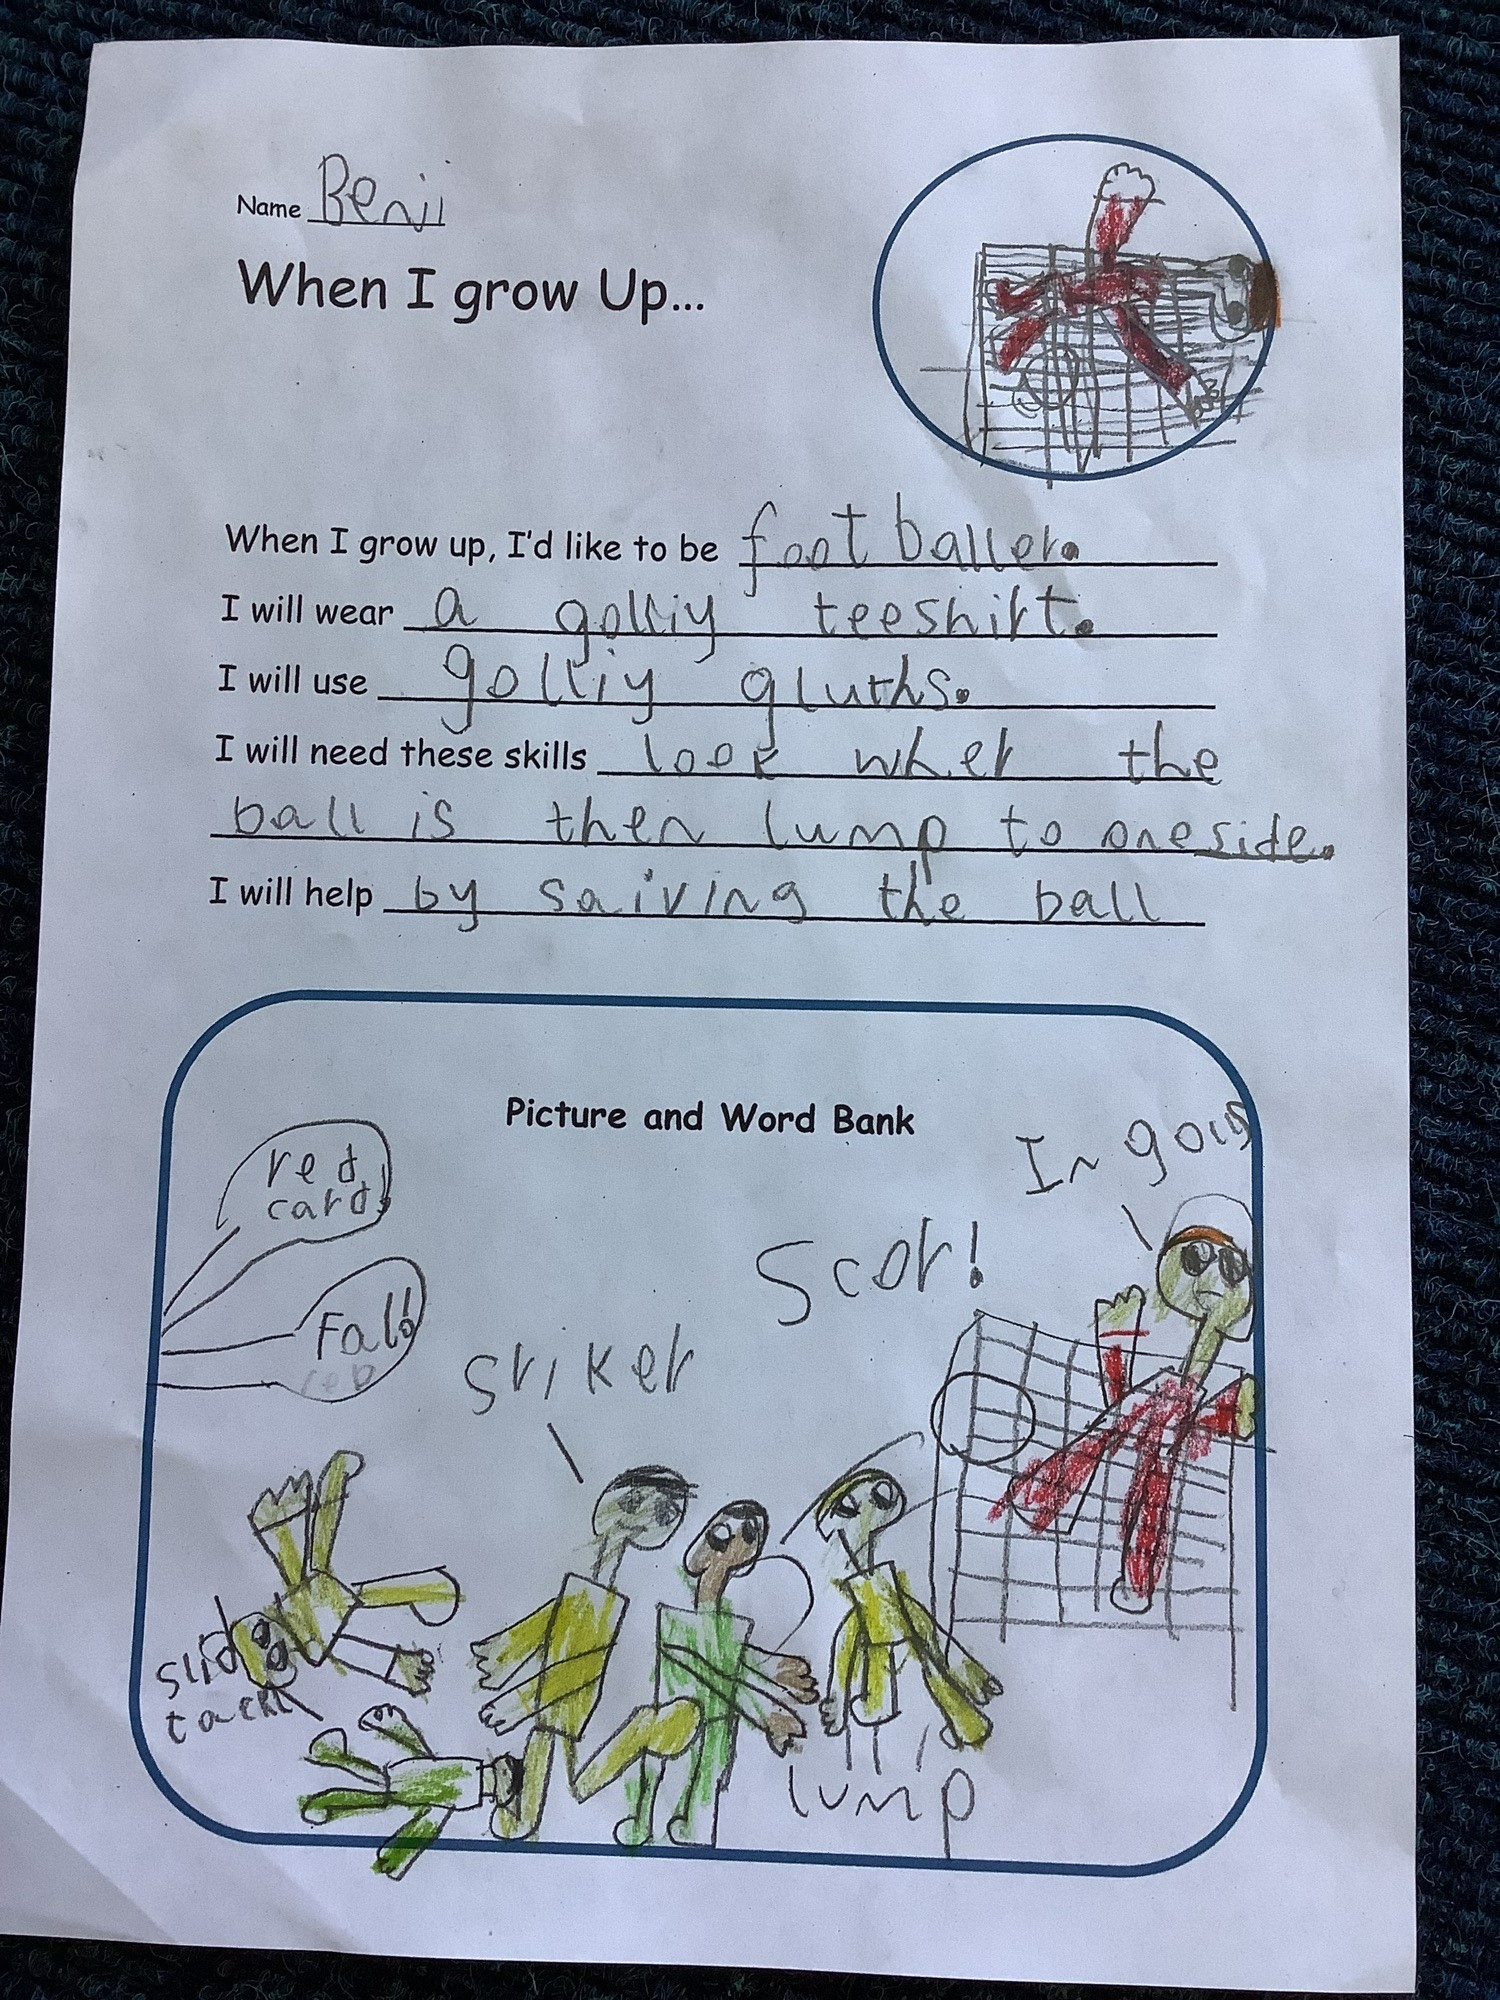 Name Benji
When I grow Up...
When I grow up, I'd like to be foot baller.
I will wear a golliy teeshirt.
I will use golliy gluths.
I will need these skills look wher the
ball is then lump to oneside.
I will help by saiving the ball
Picture and Word Bank
red
card,
In goly
Scor!
Fal!
sriker
slid
tackl
lump